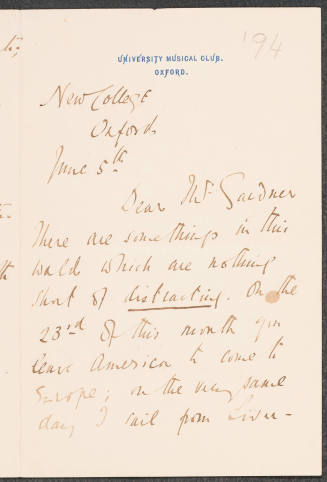 '94
UNIVERSITY MUSICAL CLUB.
OXFORD.
New College
Oxford
June 5th
Dear Mrs Gardner
There are some things in this
world which are nothing
short of distracting. On the
23rd of this month you
leave America to come to
Europe; on the very same
day I sail from Liver-